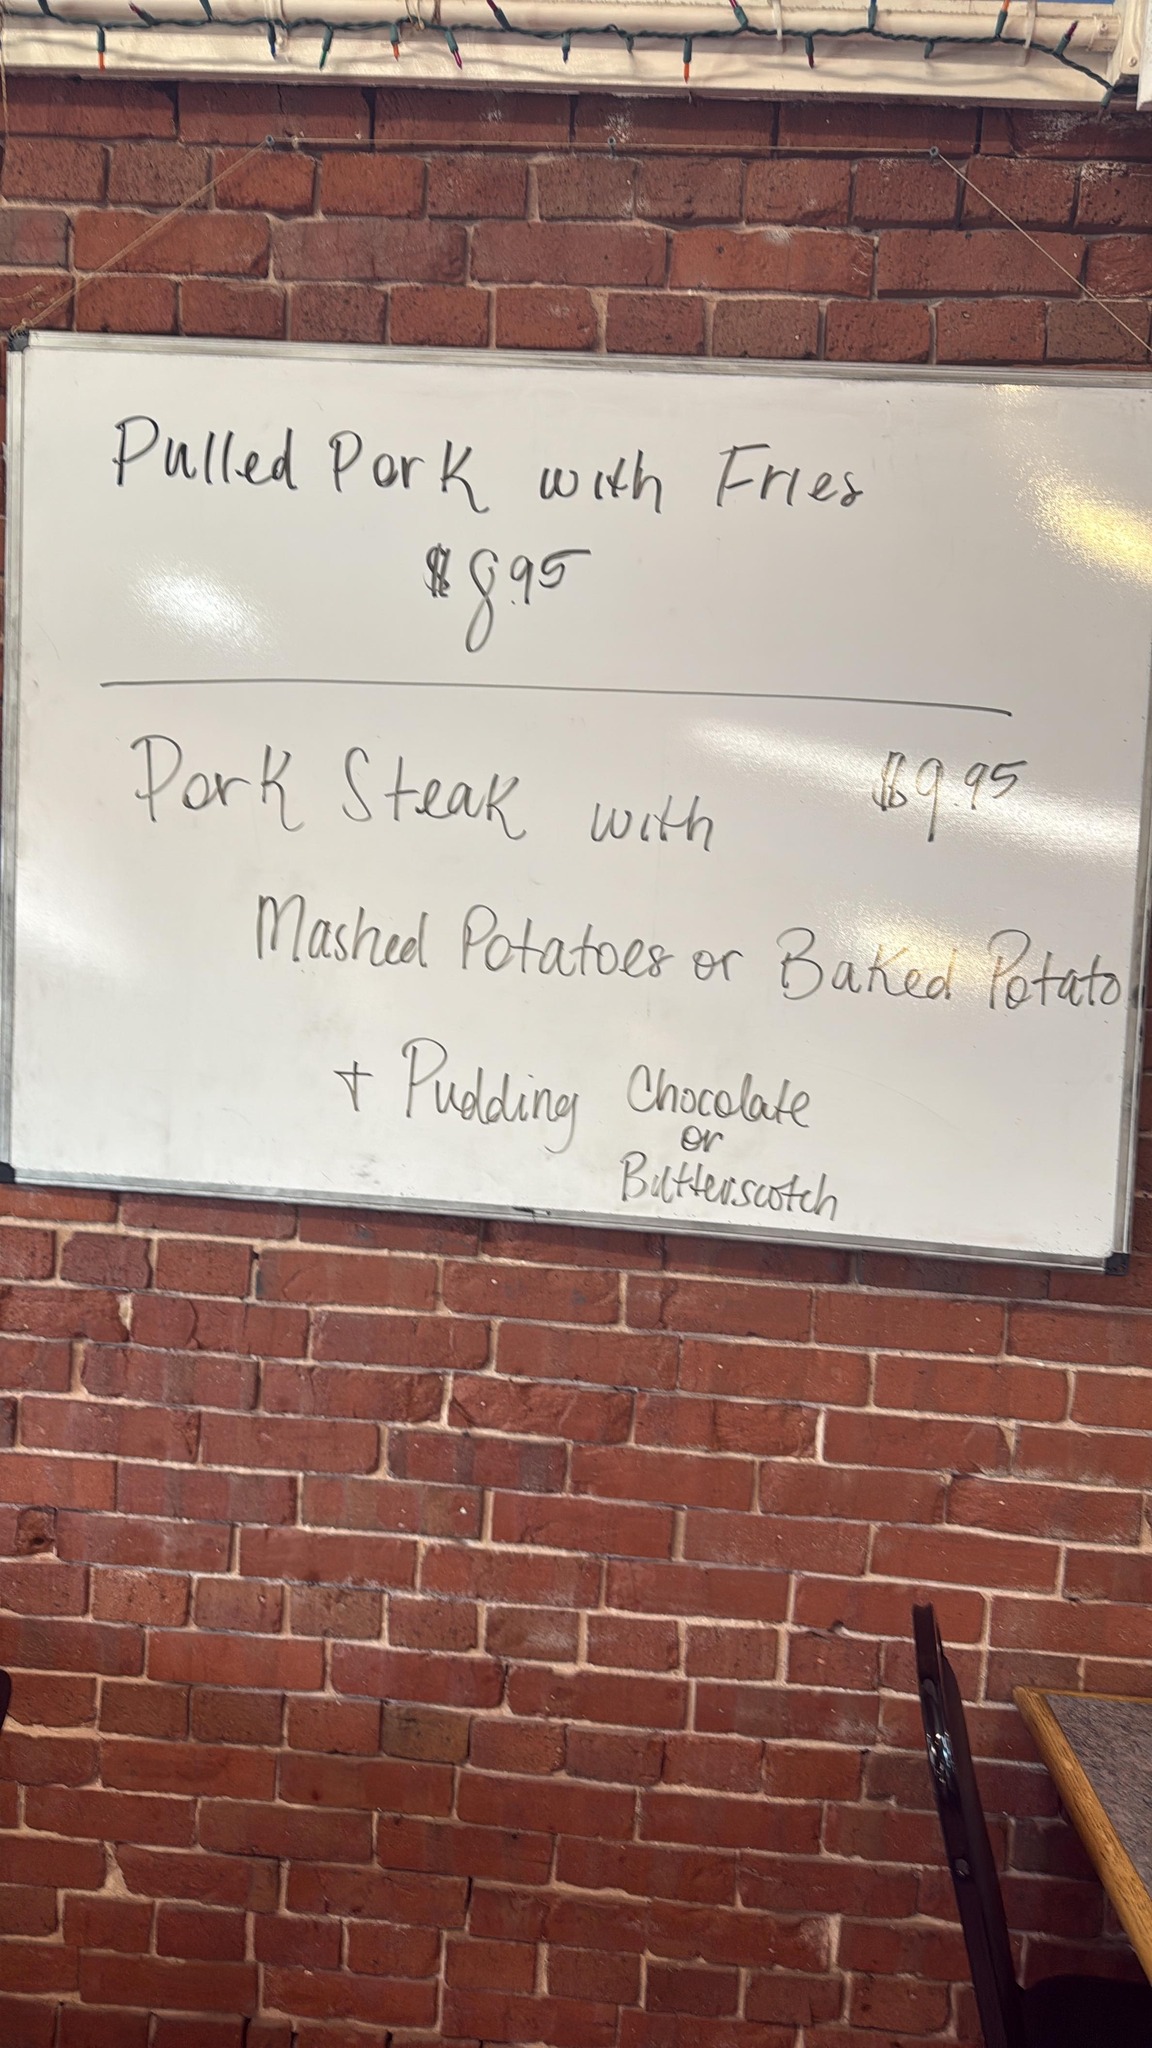 Pulled Pork with Fries
$8.95
Pork Steak with $9.95
Mashed Potatoes or Baked Potato
+ Pudding Chocolate
or
Butterscotch